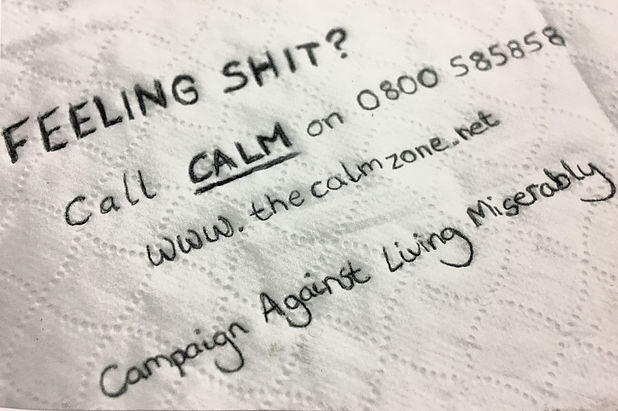 FEELING SHIT?
Call CALM on 0800 585858
www.thecalmzone.net
Campaign Against Living Miserably